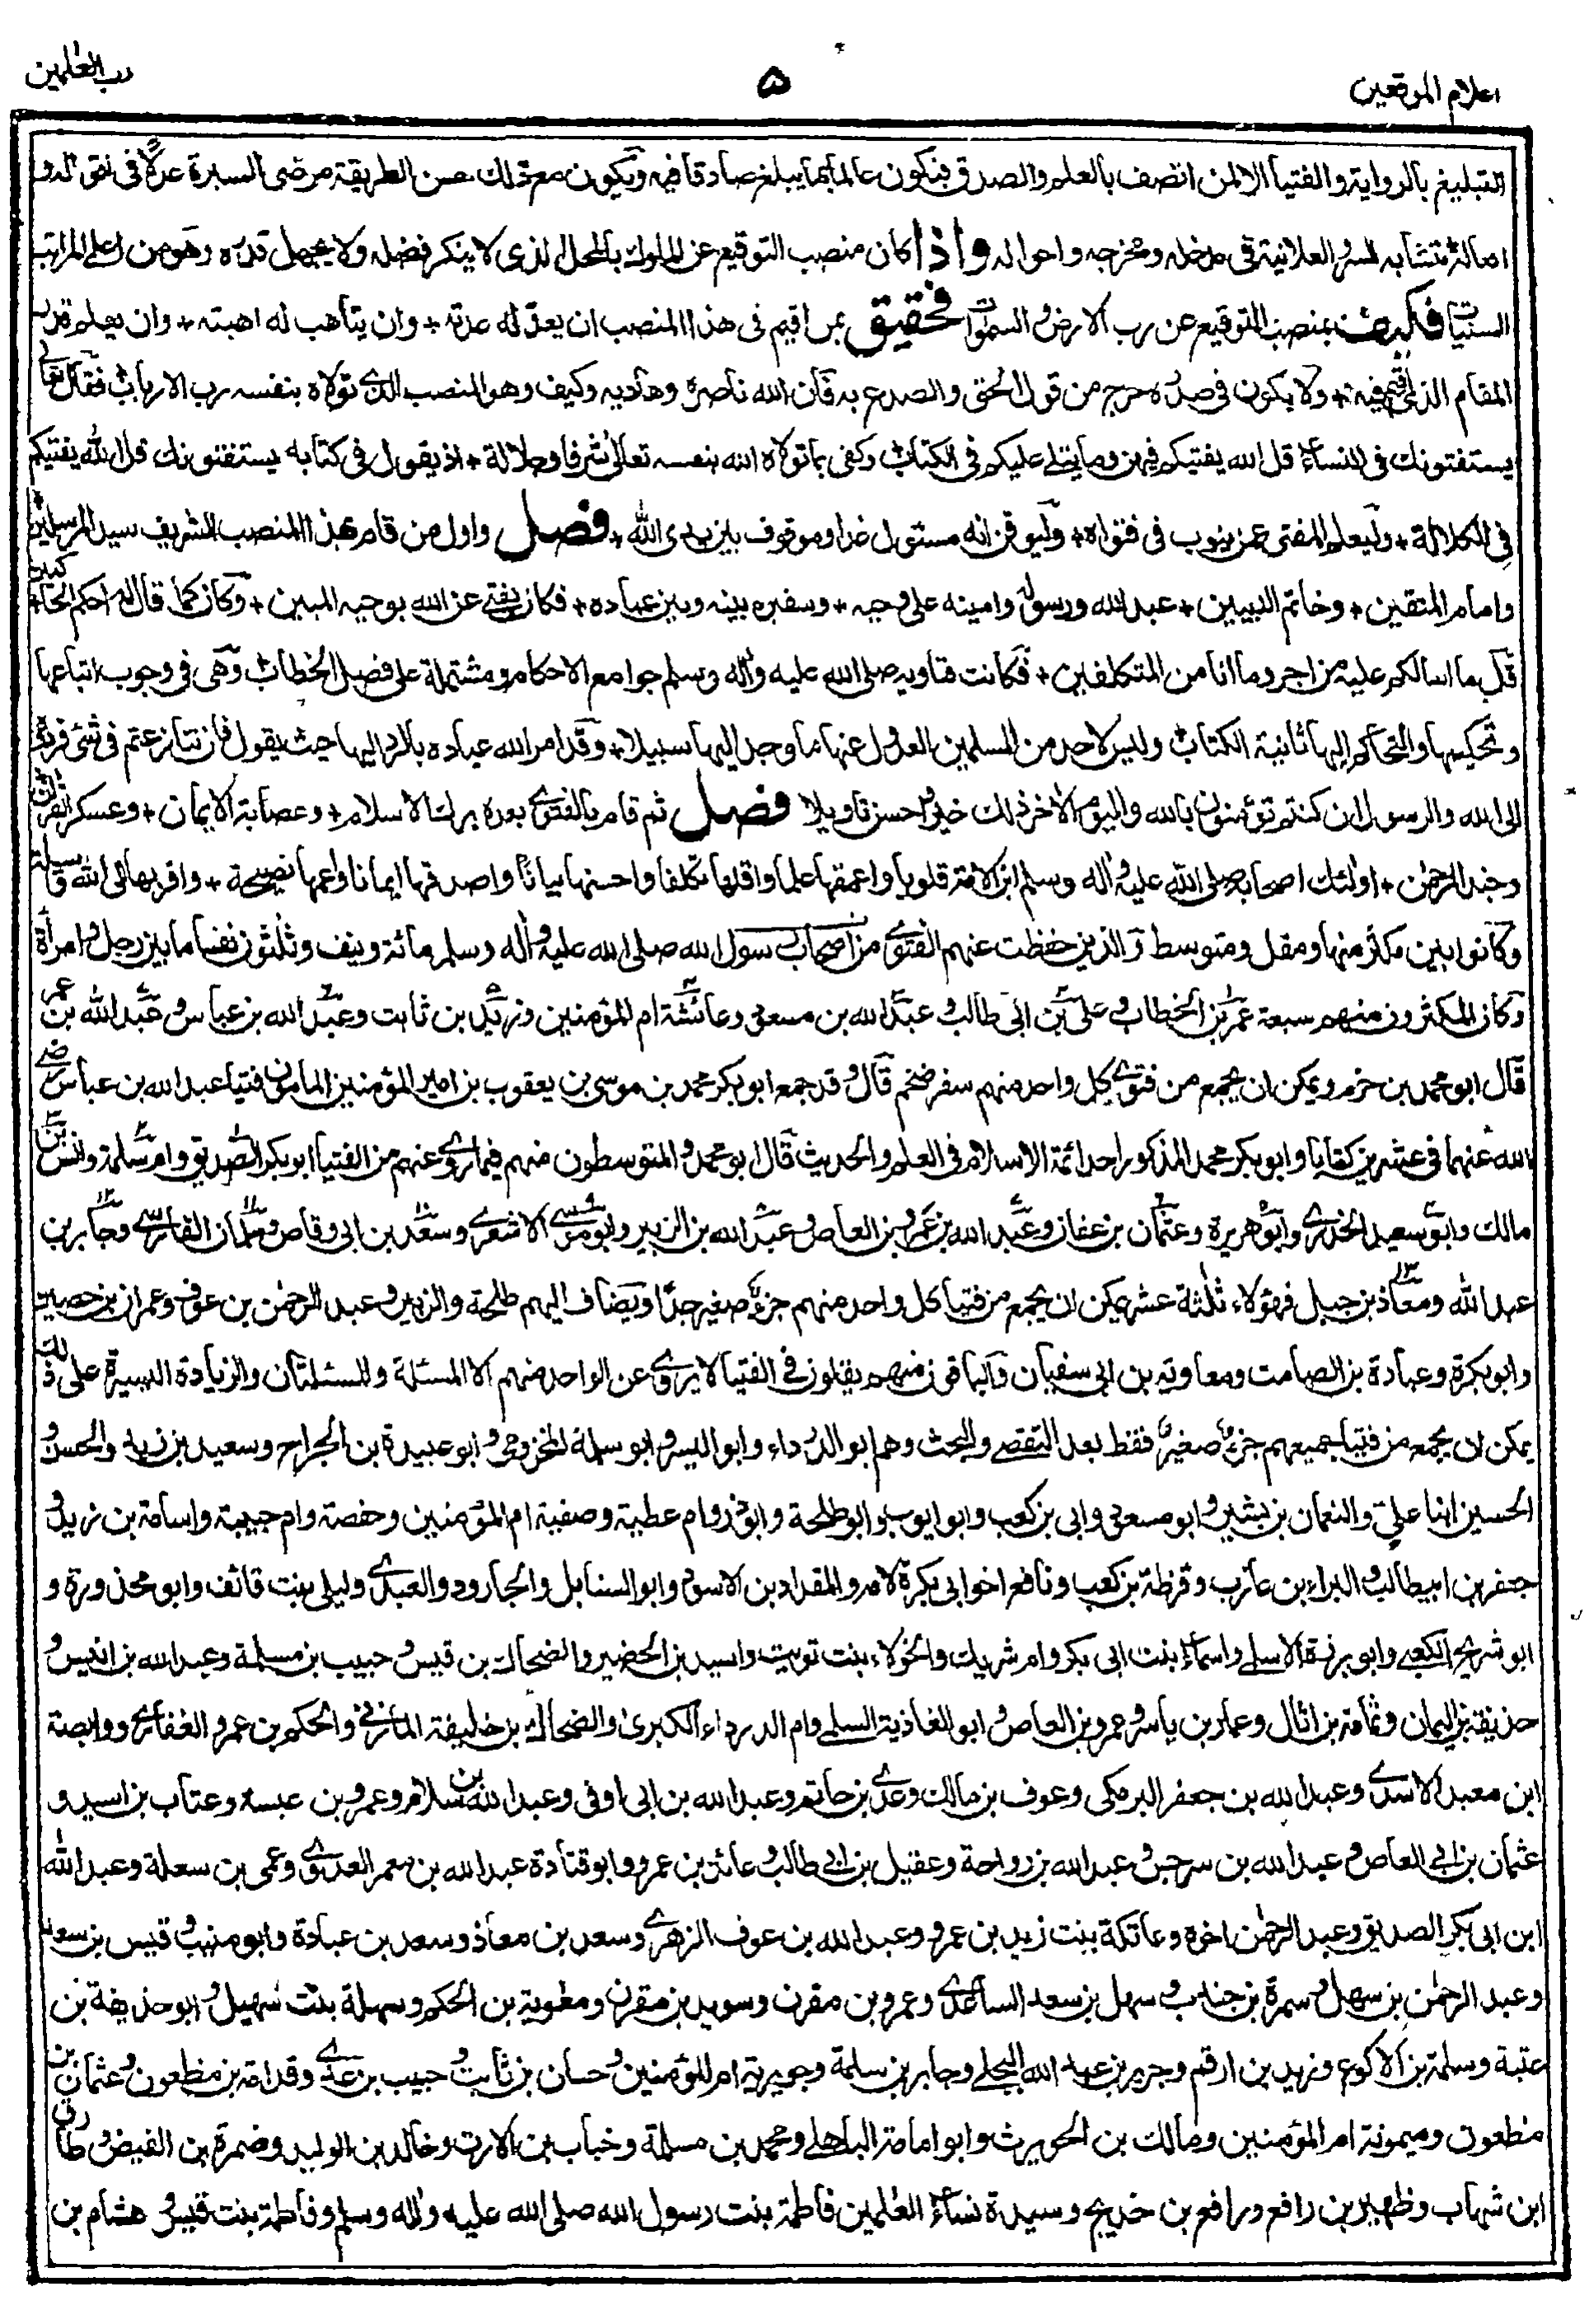 اعلام الموقعين
۵
رب العٰلمين
التبليغ بالرواية والفتيا الا لمن اتصف بالعلم والصدق فيكون عالما بما يبلغ صادقا فيه ويكون مع ذلك حسن الطريقة مرضى السيرة عدلا فى اقواله و
افعاله متشابه السر والعلانية فى مدخله ومخرجه واحواله واذا كان منصب التوقيع عن الملوك بالمحل الذى لا ينكر فضله ولا يجهل قدره وهو من اعلى المراتب
السنيات فكيف بمنصب التوقيع عن رب الارض والسموات فحقيق بمن اقيم فى هذا المنصب ان يعد له عدته + وان يتأهب له اهبته + وان يعلم قدر
المقام الذى اقيم فيه + ولا يكون فى صدره حرج من قول الحق والصدع به فان الله ناصره وهاديه وكيف وهو المنصب الذى تولاه بنفسه رب الارباب فقال تعالى
يستفتونك فى النساء قل الله يفتيكم فيهن وما يتلى عليكم فى الكتاب وكفى بما تولاه الله بنفسه تعالى شرفا وجلالة + اذ يقول فى كتابه يستفتونك قل الله يفتيكم
فى الكلالة + وليعلم المفتى عمن ينوب فى فتواه + وليوقن انه مسئول غدا وموقوف بين يدى الله + فصل واول من قام بهذا المنصب الشريف سيد المرسلين
وامام المتقين + وخاتم النبيين + عبد الله ورسوله وامينه على وحيه + وسفيره بينه وبين عباده + فكان يفتى عن الله بوحيه المبين + وكان كما قال له احكم الحاكمين
قل ما اسالكم عليه من اجر وما انا من المتكلفين + فكانت فتاويه صلى الله عليه واٰله وسلم جوامع الاحكام ومشتملة على فصل الخطاب وهى فى وجوب اتباعها
وتحكيمها والتحاكم اليها ثانية الكتاب وليس لاحد من المسلمين العدول عنها ما وجد اليها سبيلا + وقد امر الله عباده بالرد اليها حيث يقول فان تنازعتم فى شئ فردوه
الى الله والرسول ان كنتم تؤمنون بالله واليوم الاٰخر ذلك خير واحسن تاويلا فصل ثم قام بالفتوى بعده برك الاسلام + وعصابة الايمان + وعسكر القراٰن
وجند الرحمٰن + اولئك اصحابه صلى الله عليه واٰله وسلم ابر الامة قلوبا واعمقها علما واقلها تكلفا واحسنها بيانا واصدقها ايمانا واعمها نصيحة + واقربها الى الله وسيلة
وكانوا بين مكثر منها ومقل ومتوسط والذين حفظت عنهم الفتوى من اصحاب رسول الله صلى الله عليه واٰله وسلم مائة ونيف وثلثون نفسا ما بين رجل وامرأة
وكان المكثرون منهم سبعة عمر بن الخطاب وعلى بن ابى طالب وعبد الله بن مسعود وعائشة ام المؤمنين وزيد بن ثابت وعبد الله بن عباس وعبد الله بن عمر
قال ابو محمد بن حزم ويمكن ان يجمع من فتوى كل واحد منهم سفر ضخم قال وقد جمع ابو بكر محمد بن موسى بن يعقوب بن امير المؤمنين المامون فتيا عبد الله بن عباس رضى
الله عنهما فى عشرين كتابا وابو بكر محمد المذكور احد ائمة الاسلام فى العلم والحديث قال ابو محمد والمتوسطون منهم فيما روى عنهم من الفتيا ابو بكر الصديق وام سلمة وانس بن
مالك وابو سعيد الخدرى وابو هريرة وعثمان بن عفان وعبد الله بن عمرو بن العاص وعبد الله بن الزبير وابو موسى الاشعرى وسعد بن ابى وقاص وسلمان الفارسى وجابر بن
عبد الله ومعاذ بن جبل فهؤلاء ثلثة عشر يمكن ان يجمع من فتيا كل واحد منهم جزء صغير جدا ويضاف اليهم طلحة والزبير وعبد الرحمٰن بن عوف وعمران بن حصين
وابو بكرة وعبادة بن الصامت ومعاوية بن ابى سفيان والباقون منهم يقلون فى الفتيا لا يروى عن الواحد منهم الا المسئلة والمسئلتان والزيادة اليسيرة على ذلك
يمكن ان يجمع من فتيا جميعهم جزء صغير فقط بعد التقصى والبحث وهم ابو الدرداء وابو اليسر وابو سلمة المخزومى وابو عبيدة بن الجراح وسعيد بن زيد والحسن و
الحسين ابنا على والنعمان بن بشير وابو مسعود وابى بن كعب وابو ايوب وابو طلحة وابو ذر وام عطية وصفية ام المؤمنين وحفصة وام حبيبة واسامة بن زيد و
جعفر بن ابيطالب والبراء بن عازب وقرظة بن كعب ونافع اخو ابى بكرة لامه والمقداد بن الاسود وابو السنابل والجارود والعبدى وليلى بنت قائف وابو محذورة و
ابو شريح الكعبى وابو برزة الاسلمى واسماء بنت ابى بكر وام شريك والخولاء بنت تويت واسيد بن الحضير والضحاك بن قيس وحبيب بن مسلمة وعبد الله بن انيس و
حذيفة بن اليمان وثمامة بن اثال وعمار بن ياسر وعمرو بن العاص وابو الغادية السلمى وام الدرداء الكبرى والضحاك بن خليفة المازنى والحكم بن عمرو الغفارى ووابصة
ابن معبد الاسدى وعبد الله بن جعفر البرمكى وعوف بن مالك وعدى بن حاتم وعبد الله بن ابى اوفى وعبد الله بن سلام وعمرو بن عبسة وعتاب بن اسيد و
عثمان بن ابى العاص وعبد الله بن سرجس وعبد الله بن رواحة وعقيل بن ابى طالب وعائذ بن عمرو وابو قتادة عبد الله بن معمر العدوى وعمى بن سعلة وعبد الله
ابن ابى بكر الصديق وعبد الرحمٰن اخوه وعاتكة بنت زيد بن عمرو وعبد الله بن عوف الزهرى وسعد بن معاذ وسعد بن عبادة وابو منيب وقيس بن سعد
وعبد الرحمٰن بن سهل وسمرة بن جندب وسهل بن سعد الساعدى وعمرو بن مقرن وسويد بن مقرن ومعٰوية بن الحكم وسهلة بنت سهيل وابو حذيفة بن
عتبة وسلمة بن الاكوع وزيد بن ارقم وجرير بن عبد الله البجلى وجابر بن سلمة وجويرية ام المؤمنين وحسان بن ثابت وحبيب بن عدى وقدامة بن مظعون وعثمان بن
مظعون وميمونة ام المؤمنين ومالك بن الحويرث وابو امامة الباهلى ومحمد بن مسلمة وخباب بن الارت وخالد بن الوليد وضمرة بن الفيض وطارق
ابن شهاب وظهير بن رافع ورافع بن خديج وسيدة نساء العٰلمين فاطمة بنت رسول الله صلى الله عليه واٰله وسلم وفاطمة بنت قيس وهشام بن